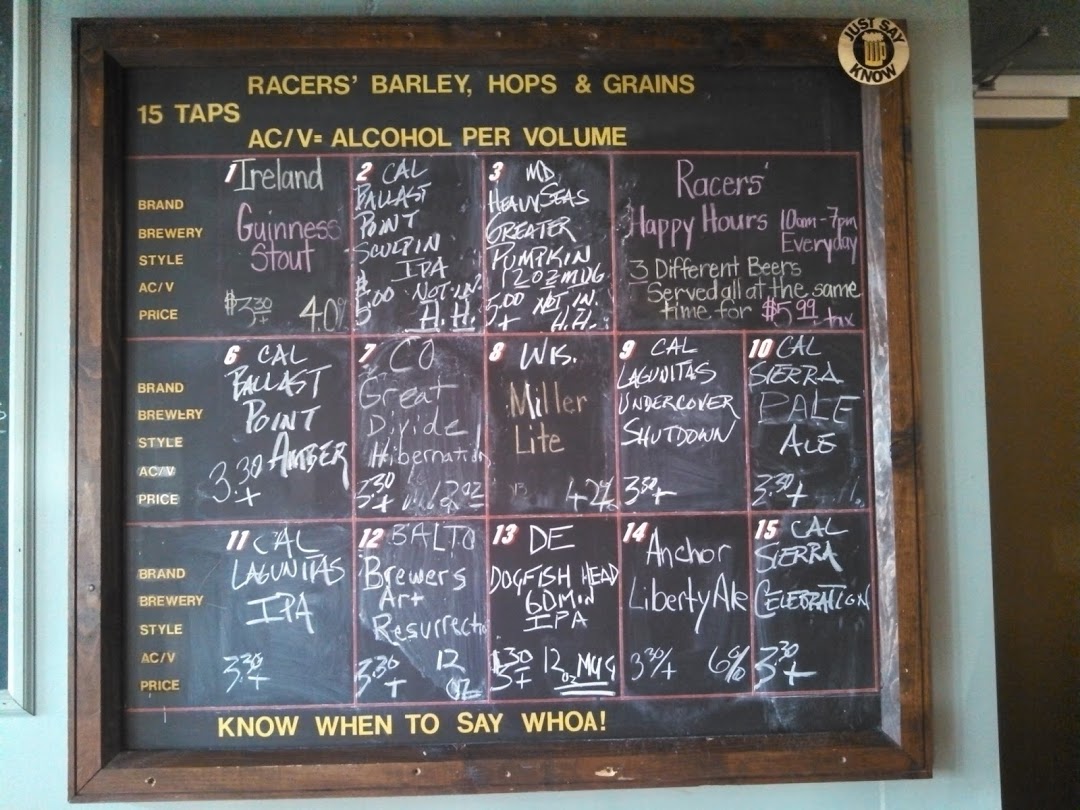 JUST SAY
KNOW
RACERS' BARLEY, HOPS & GRAINS
15 TAPS
AC/V= ALCOHOL PER VOLUME
BRAND
BREWERY
STYLE
AC/V
PRICE
1 Ireland
Guinness
Stout
$3.30
+
4.0%
2 CAL
BALLAST
POINT
SCULPIN
IPA
$
5.00 NOT IN
H.H.
3 MD
HEAVY SEAS
GREATER
PUMPKIN
12 OZ MUG
5.00 NOT IN
+ H.H.
Racers'
Happy Hours 10am-7pm
Everyday
3 Different Beers
Served all at the same
time for $5.99 + tax
BRAND
BREWERY
STYLE
AC/V
PRICE
6 CAL
BALLAST
POINT
AMBER
3.30
+
7 CO
Great
Divide
Hibernation
3.30
+
8 WIS.
Miller
Lite
4.2%
9 CAL
LAGUNITAS
UNDERCOVER
SHUTDOWN
10 CAL
SIERRA
PALE
ALE
3.30
+
BRAND
BREWERY
STYLE
AC/V
PRICE
11 CAL
LAGUNITAS
IPA
3.30
+
12 BALTO
Brewers
Art
Resurrectio
3.30 12
+ OZ
13 DE
DOGFISH HEAD
60 MIN
IPA
12 OZ MUG
14 Anchor
Liberty Ale
3.30/+ 6%
15 CAL
SIERRA
CELEBRATION
3.30
+
KNOW WHEN TO SAY WHOA!